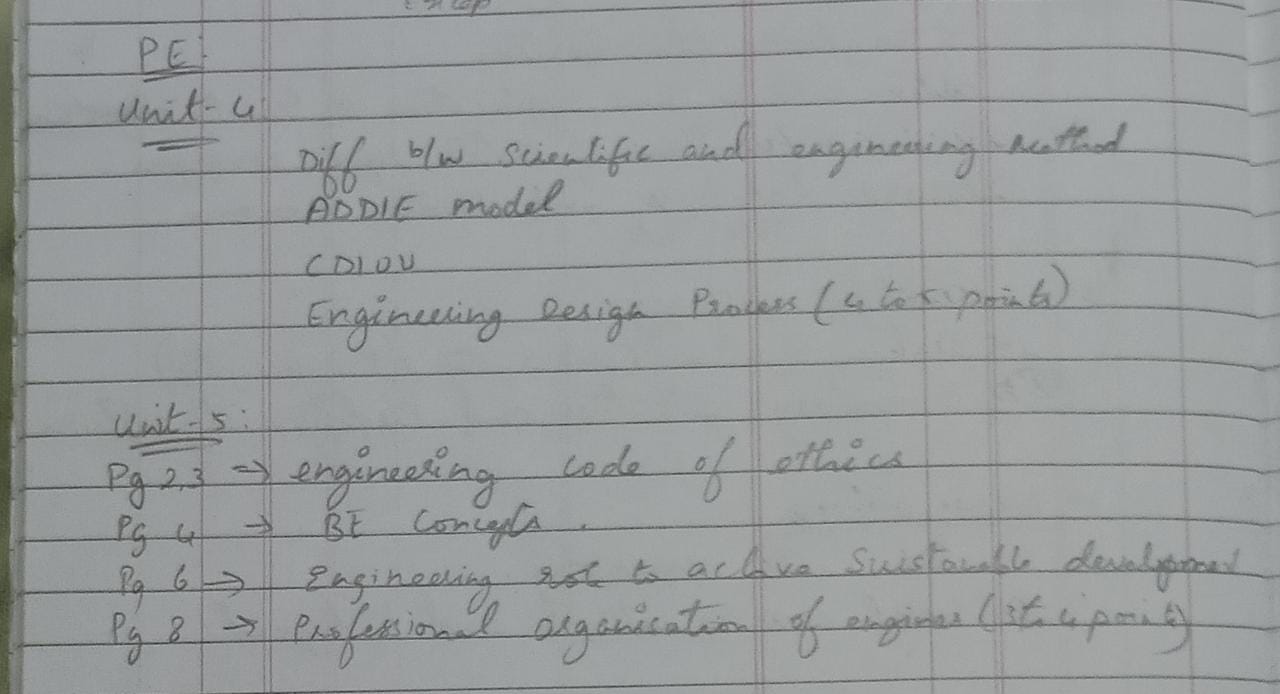 PE:
Unit-4
Diff b/w scientific and engineering method
ADDIE model
CDIOU
Engineering Design Process (4 to 5 points)
Unit-5:
Pg 2,3 ⇒ engineering code of ethics
Pg 4 → BE Concepts.
Pg 6 → Engineering to development
Pg 8 → Professional organisation of (3to 4 point)